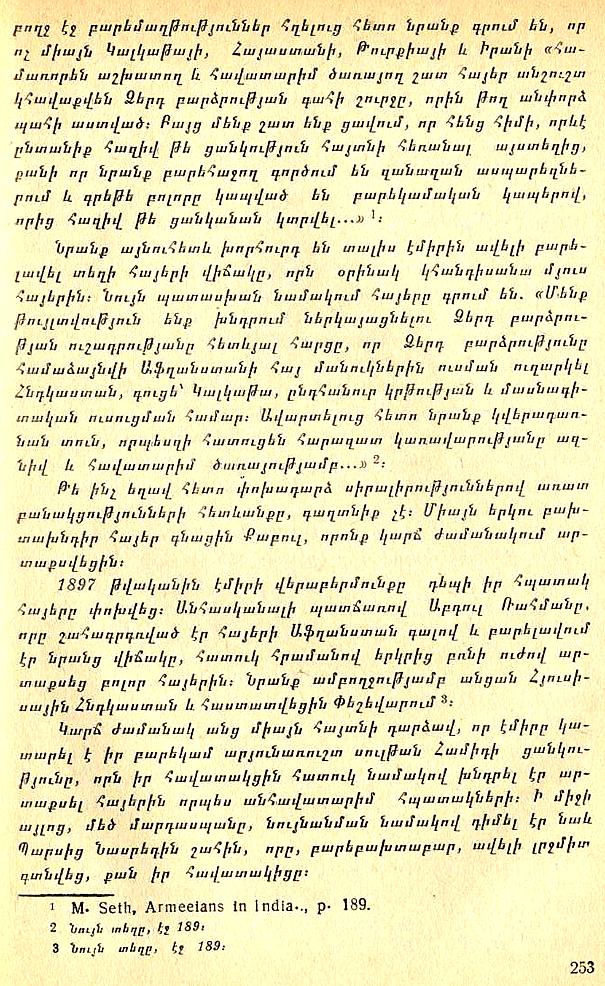 բողջ էջ բարեմաղթություններ հղելուց հետո նրանք գրում են, որ
ոչ միայն Կալկաթայի, Հայաստանի, Թուրքիայի և Իրանի «հա-
մառորեն աշխատող և հավատարիմ ծառայող շատ հայեր անշուշտ
կհավաքվեն Ձերդ բարձրության գահի շուրջը, որին թող անփորձ
պահի աստված։ Բայց մենք շատ ենք ցավում, որ հենց հիմի, որևէ
ընտանիք հազիվ թե ցանկություն հայտնի հեռանալ այստեղից,
քանի որ նրանք բարեհաջող գործում են զանազան ասպարեզնե-
րում և գրեթե բոլորը կապված են բարեկամական կապերով,
որից հազիվ թե ցանկանան կտրվել...» 1։
Նրանք այնուհետև խորհուրդ են տալիս էմիրին ավելի բարե-
լավել տեղի հայերի վիճակը, որն օրինակ կհանդիսանա մյուս
հայերին։ Նույն պատասխան նամակում հայերը գրում են. «Մենք
թույլտվություն ենք խնդրում ներկայացնելու Ձերդ բարձրու-
թյան ուշադրությանը հետևյալ հարցը, որ Ձերդ բարձրությունը
համաձայնվի Աֆղանստանի հայ մանուկներին ուսման ուղարկել
Հնդկաստան, գուցե՝ Կալկաթա, ընդհանուր կրթության և մասնագի-
տական ուսուցման համար։ Ավարտելուց հետո նրանք կվերադառ-
նան տուն, որպեսզի հատուցեն հարազատ կառավարությանը ազ-
նիվ և հավատարիմ ծառայությամբ...» 2։
Թե ինչ եղավ հետո փոխադարձ սիրալիրություններով առատ
բանակցությունների հետևանքը, գաղտնիք չէ։ Միայն երկու բախ-
տախնդիր հայեր գնացին Քաբուլ, որոնք կարճ ժամանակում ար-
տաքսվեցին։
1897 թվականին էմիրի վերաբերմունքը դեպի իր հպատակ
հայերը փոխվեց։ Անհասկանալի պատճառով Աբդուլ Ռահմանը.
որը շահագրգռված էր հայերի Աֆղանստան գալով և բարելավում
էր նրանց վիճակը, հատուկ հրամանով երկրից բռնի ուժով ար-
տաքսեց բոլոր հայերին։ Նրանք ամբողջությամբ անցան Հյուսի-
սային Հնդկաստան և հաստատվեցին Փեշեվարում 3։
Կարճ ժամանակ անց միայն հայտնի դարձավ, որ էմիրը կա-
տարել է իր բարեկամ արյունառուշտ սուլթան Համիդի ցանկու-
թյունը, որն իր հավատակցին հատուկ նամակով խնդրել էր ար-
տաքսել հայերին որպես անհավատարիմ հպատակների։ Ի միջի
այլոց, մեծ մարդասպանը, նույնանման նամակով դիմել էր նաև
Պարսից Նասրեդին շահին, որը, բարեբախտաբար, ավելի լրջմիտ
գտնվեց, քան իր հավատակիցը։
1 M. Seth, Armeeians in India.., p. 189.
2 Նույն տեղը, էջ 189։
3 Նույն տեղը, էջ 189։
253